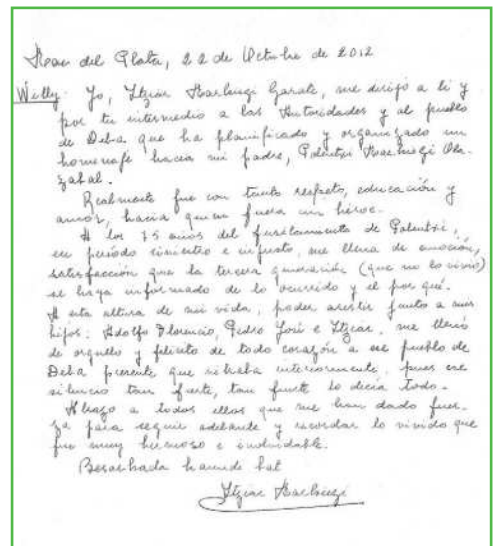 Mar del Plata, 22 de Octubre de 2012
Willy: Yo, Itziar Markiegi Garate, me dirijo a ti y
por tu intermedio a las Autoridades y al pueblo
de Deba que ha planificado y organizado un
homenaje hacia mi padre, Polentzi Markiegi Ola-
zabal.
Realmente fue con tanto respeto, educación y
amor, hacia quien fuera un héroe.
A los 75 años del fusilamiento de Polentzi,
en período siniestro e injusto, me llena de emoción,
satisfacción que la tercera generación (que no lo vivió)
se haya informado de lo ocurrido y el por qué.
A esta altura de mi vida, poder asistir junto a mis
hijos: Adolfo Florencio, Pedro José e Itziar, me llenó
de orgullo y felicito de todo corazón a ese pueblo de
Deba presente que vibraba interiormente, pues ese
silencio tan fuerte, tan fuerte lo decía todo.
Abrazo a todos ellos que me han dado fuer-
za para seguir adelante y recordar lo vivido que
fue muy hermoso e inolvidable.
Besarkada haundi bat
Itziar Markiegi